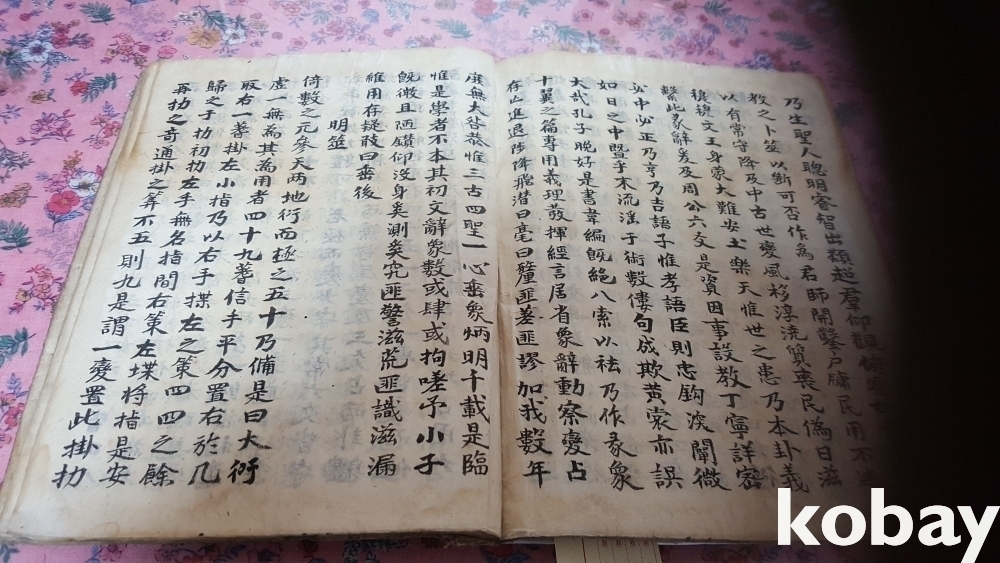 乃生聖人聰明睿智出類超羣仰觀俯
教之卜筮以斷可否作為君師開鑿戶牖民用不
以有常守降及中古世變風移淳澆質喪民偽日滋
穆穆文王身蒙大難安土樂天惟世之患乃本卦義
繫此彖辭爰及周公六爻是資因事設教丁寧詳密
必中必正乃亨乃吉語子惟孝語臣則忠鈎深闡微
如日之中暨乎末流淫于術數僂句成欺黃裳亦誤
大哉孔子晚好是書韋編旣絶八索以祛乃作彖象
十翼之篇專用義理發揮經言居省象辭動察變占
存亡進退陟降飛潜曰毫曰釐匪差匪謬加我數年
庶無大咎恭惟三古四聖一心垂象炳明千載是臨
惟是學者不本其初文辭象數或肆或拘嗟予小子
旣微且陋鑽仰沒身奚測奚究匪警滋荒匪識滋漏
維用存疑敢曰垂後
明筮
倚數之元參天兩地衍而極之五十乃備是曰大衍
虛一無為其為用者四十九蓍信手平分置右於几
取右一蓍掛左小指乃以右手揲左之策四四之餘
歸之于扐初扐左手無名指間右策左揲將指是安
再扐之奇通掛之筭不五則九是謂一變置此掛扐
kobay